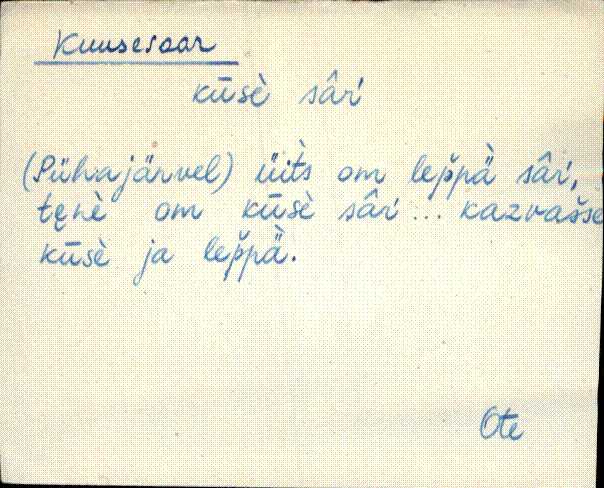 Kuusesaar
kūsè sâŕ
(Pühajärvel) üiťs om lep̆pä̀ sâŕ,
tęnè om kūsè sâŕ ... kazvašse
kūsè ja lep̆pä̀.
Ote